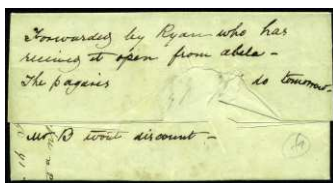 Forwarded by Ryan who has
received it open from abela -
The pagarés do tomorrow.
Mr B wont discount -